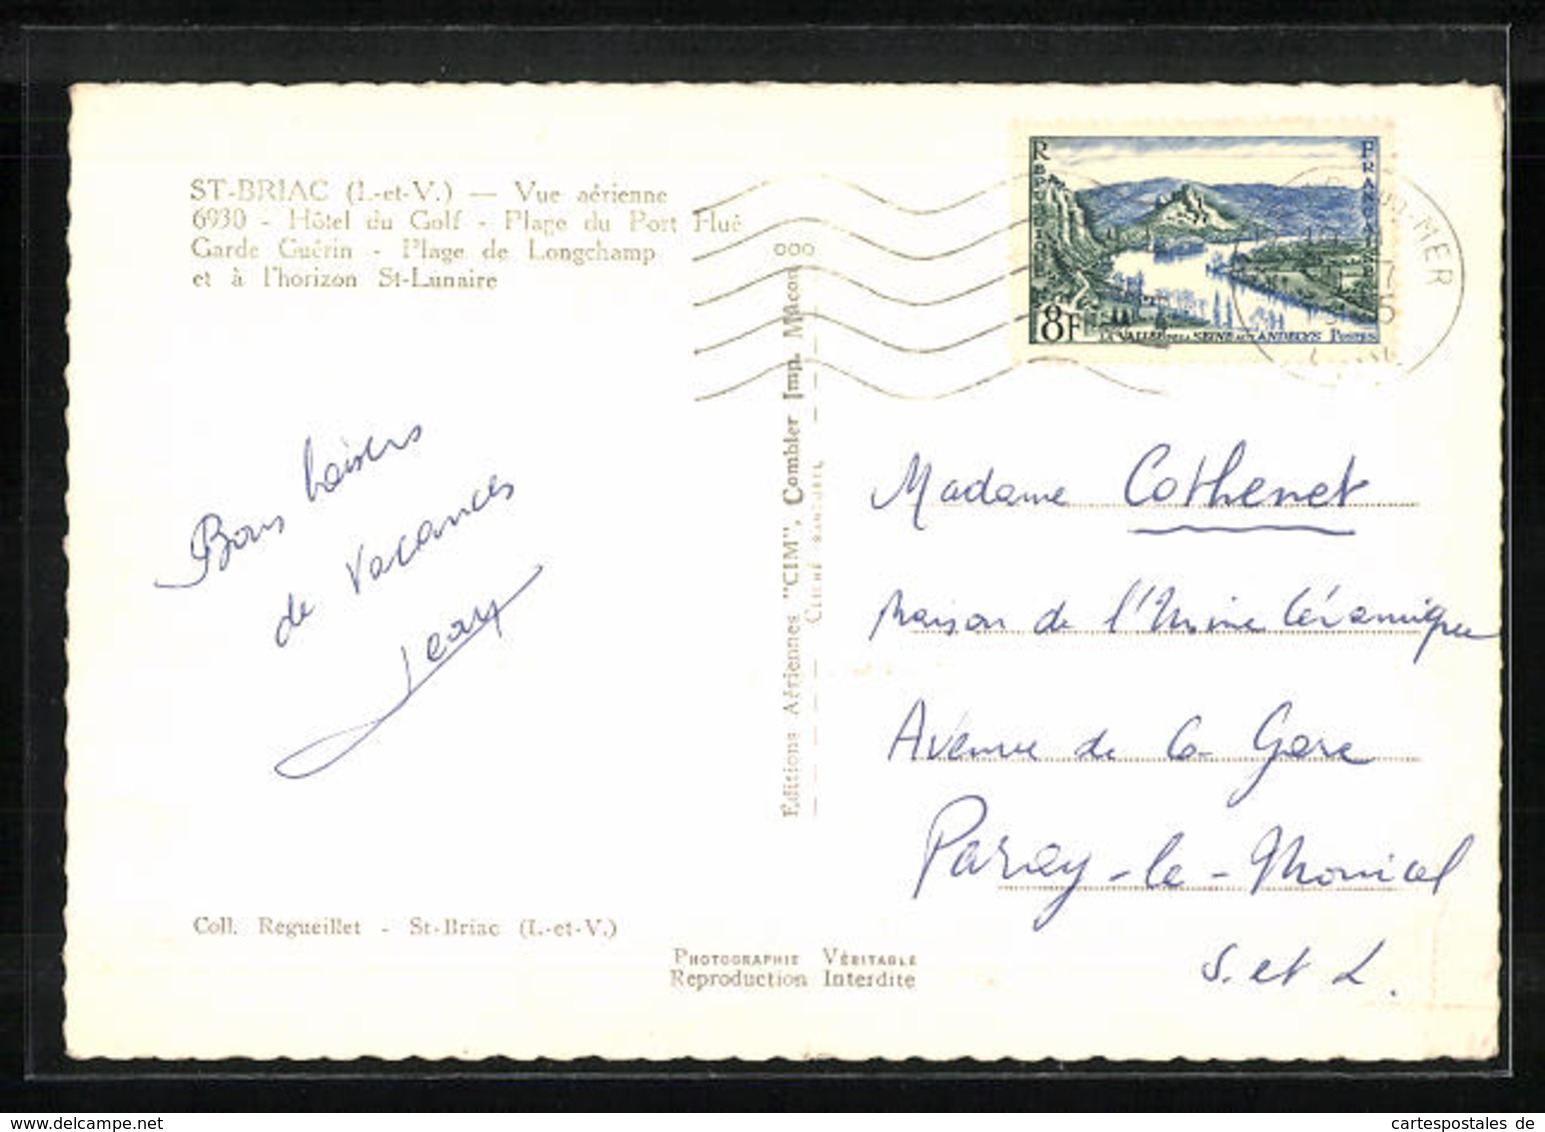 ST-BRIAC (I.-et-V.) — Vue aérienne
6930 - Hôtel du Golf - Plage du Port Hué
Garde Guérin - Plage de Longchamp
et à l'horizon St-Lunaire
Bons baisers
de vacances
Jeany
Coll. Regueillet - St-Briac (I.-et-V.)
PHOTOGRAPHIE VÉRITABLE
Reproduction Interdite
Editions Aériennes "CIM", Combier Imp. Mâcon
REPUBLIQUE FRANÇAISE
8F
LA VALLÉE DE LA SEINE AUX ANDELYS POSTES
-MER
Madame Cothenet
Maison de l'Usine Céramique
Avenue de la Gare
Paray-le-Monial
S. et L.
cartespostales de